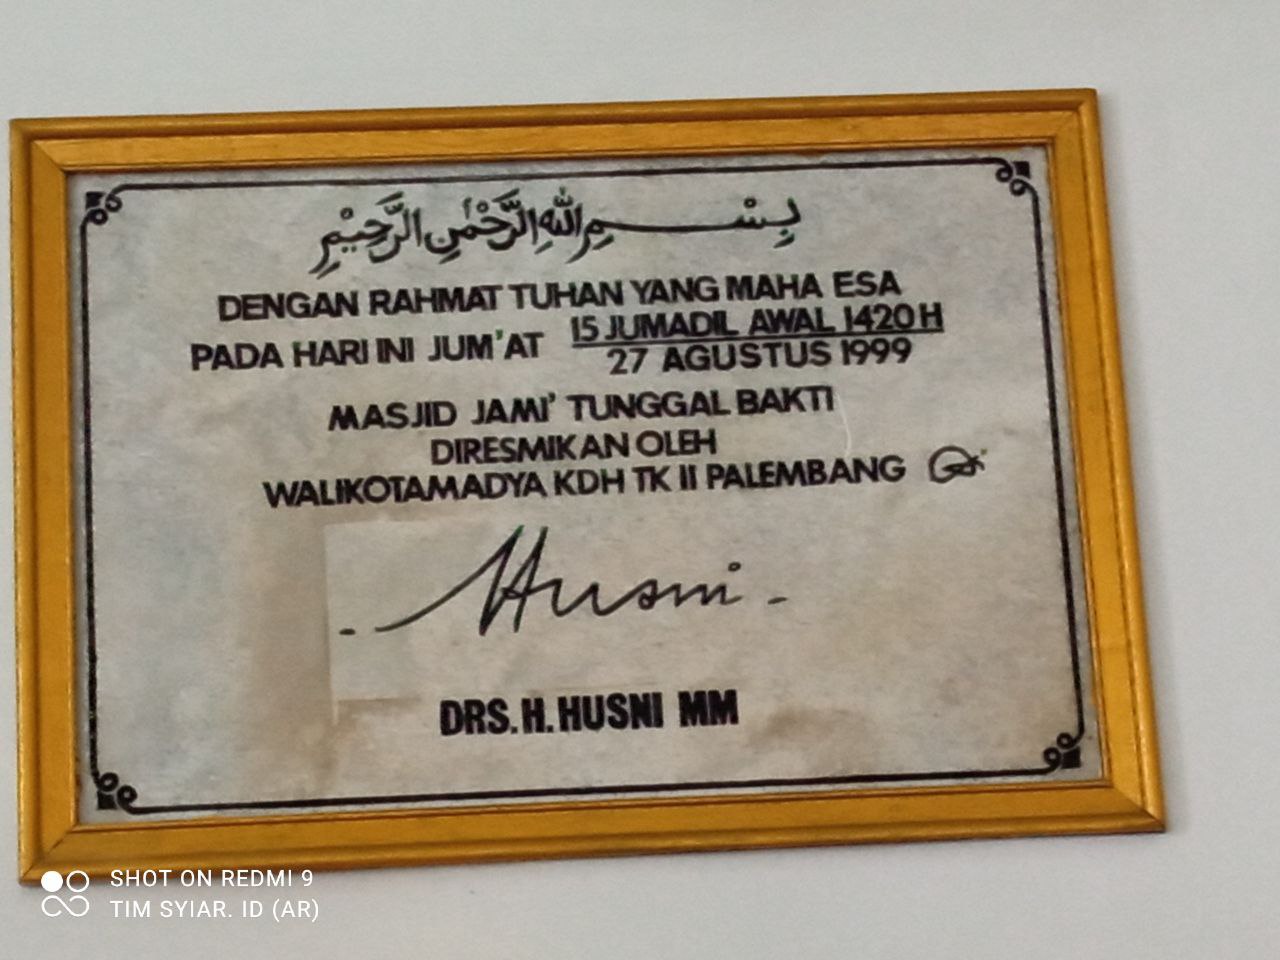 بِسْمِ اللهِ الرَّحْمٰنِ الرَّحِيْمِ
DENGAN RAHMAT TUHAN YANG MAHA ESA
PADA HARI INI JUM'AT 15 JUMADIL AWAL 1420 H
27 AGUSTUS 1999
MASJID JAMI' TUNGGAL BAKTI
DIRESMIKAN OLEH
WALIKOTAMADYA KDH TK II PALEMBANG
Husni
DRS. H. HUSNI MM
SHOT ON REDMI 9
TIM SYIAR. ID (AR)